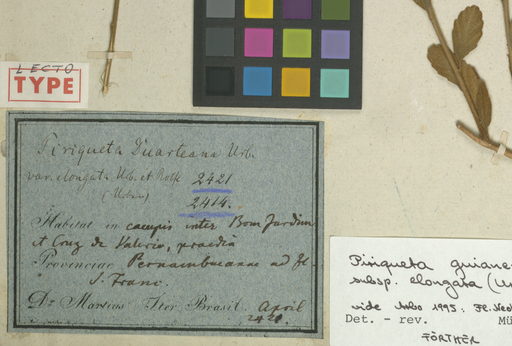 LECTO
TYPE
Piriqueta Duarteana Urb.
var. elongata Urb. et Rolfe 2421
(Urban)
2414.
Habitat in campis inter Bom Jardim
et Cruz de Valerio, praedia
Provinciae Pernambucanae ad fl.
S. Franc.
Dr. Martius Iter Brasil. April
2421.
Piriqueta guiane
subsp. elongata (Ur
vide Arbo 1995:
Det. - rev. Mü
FÖRTHER